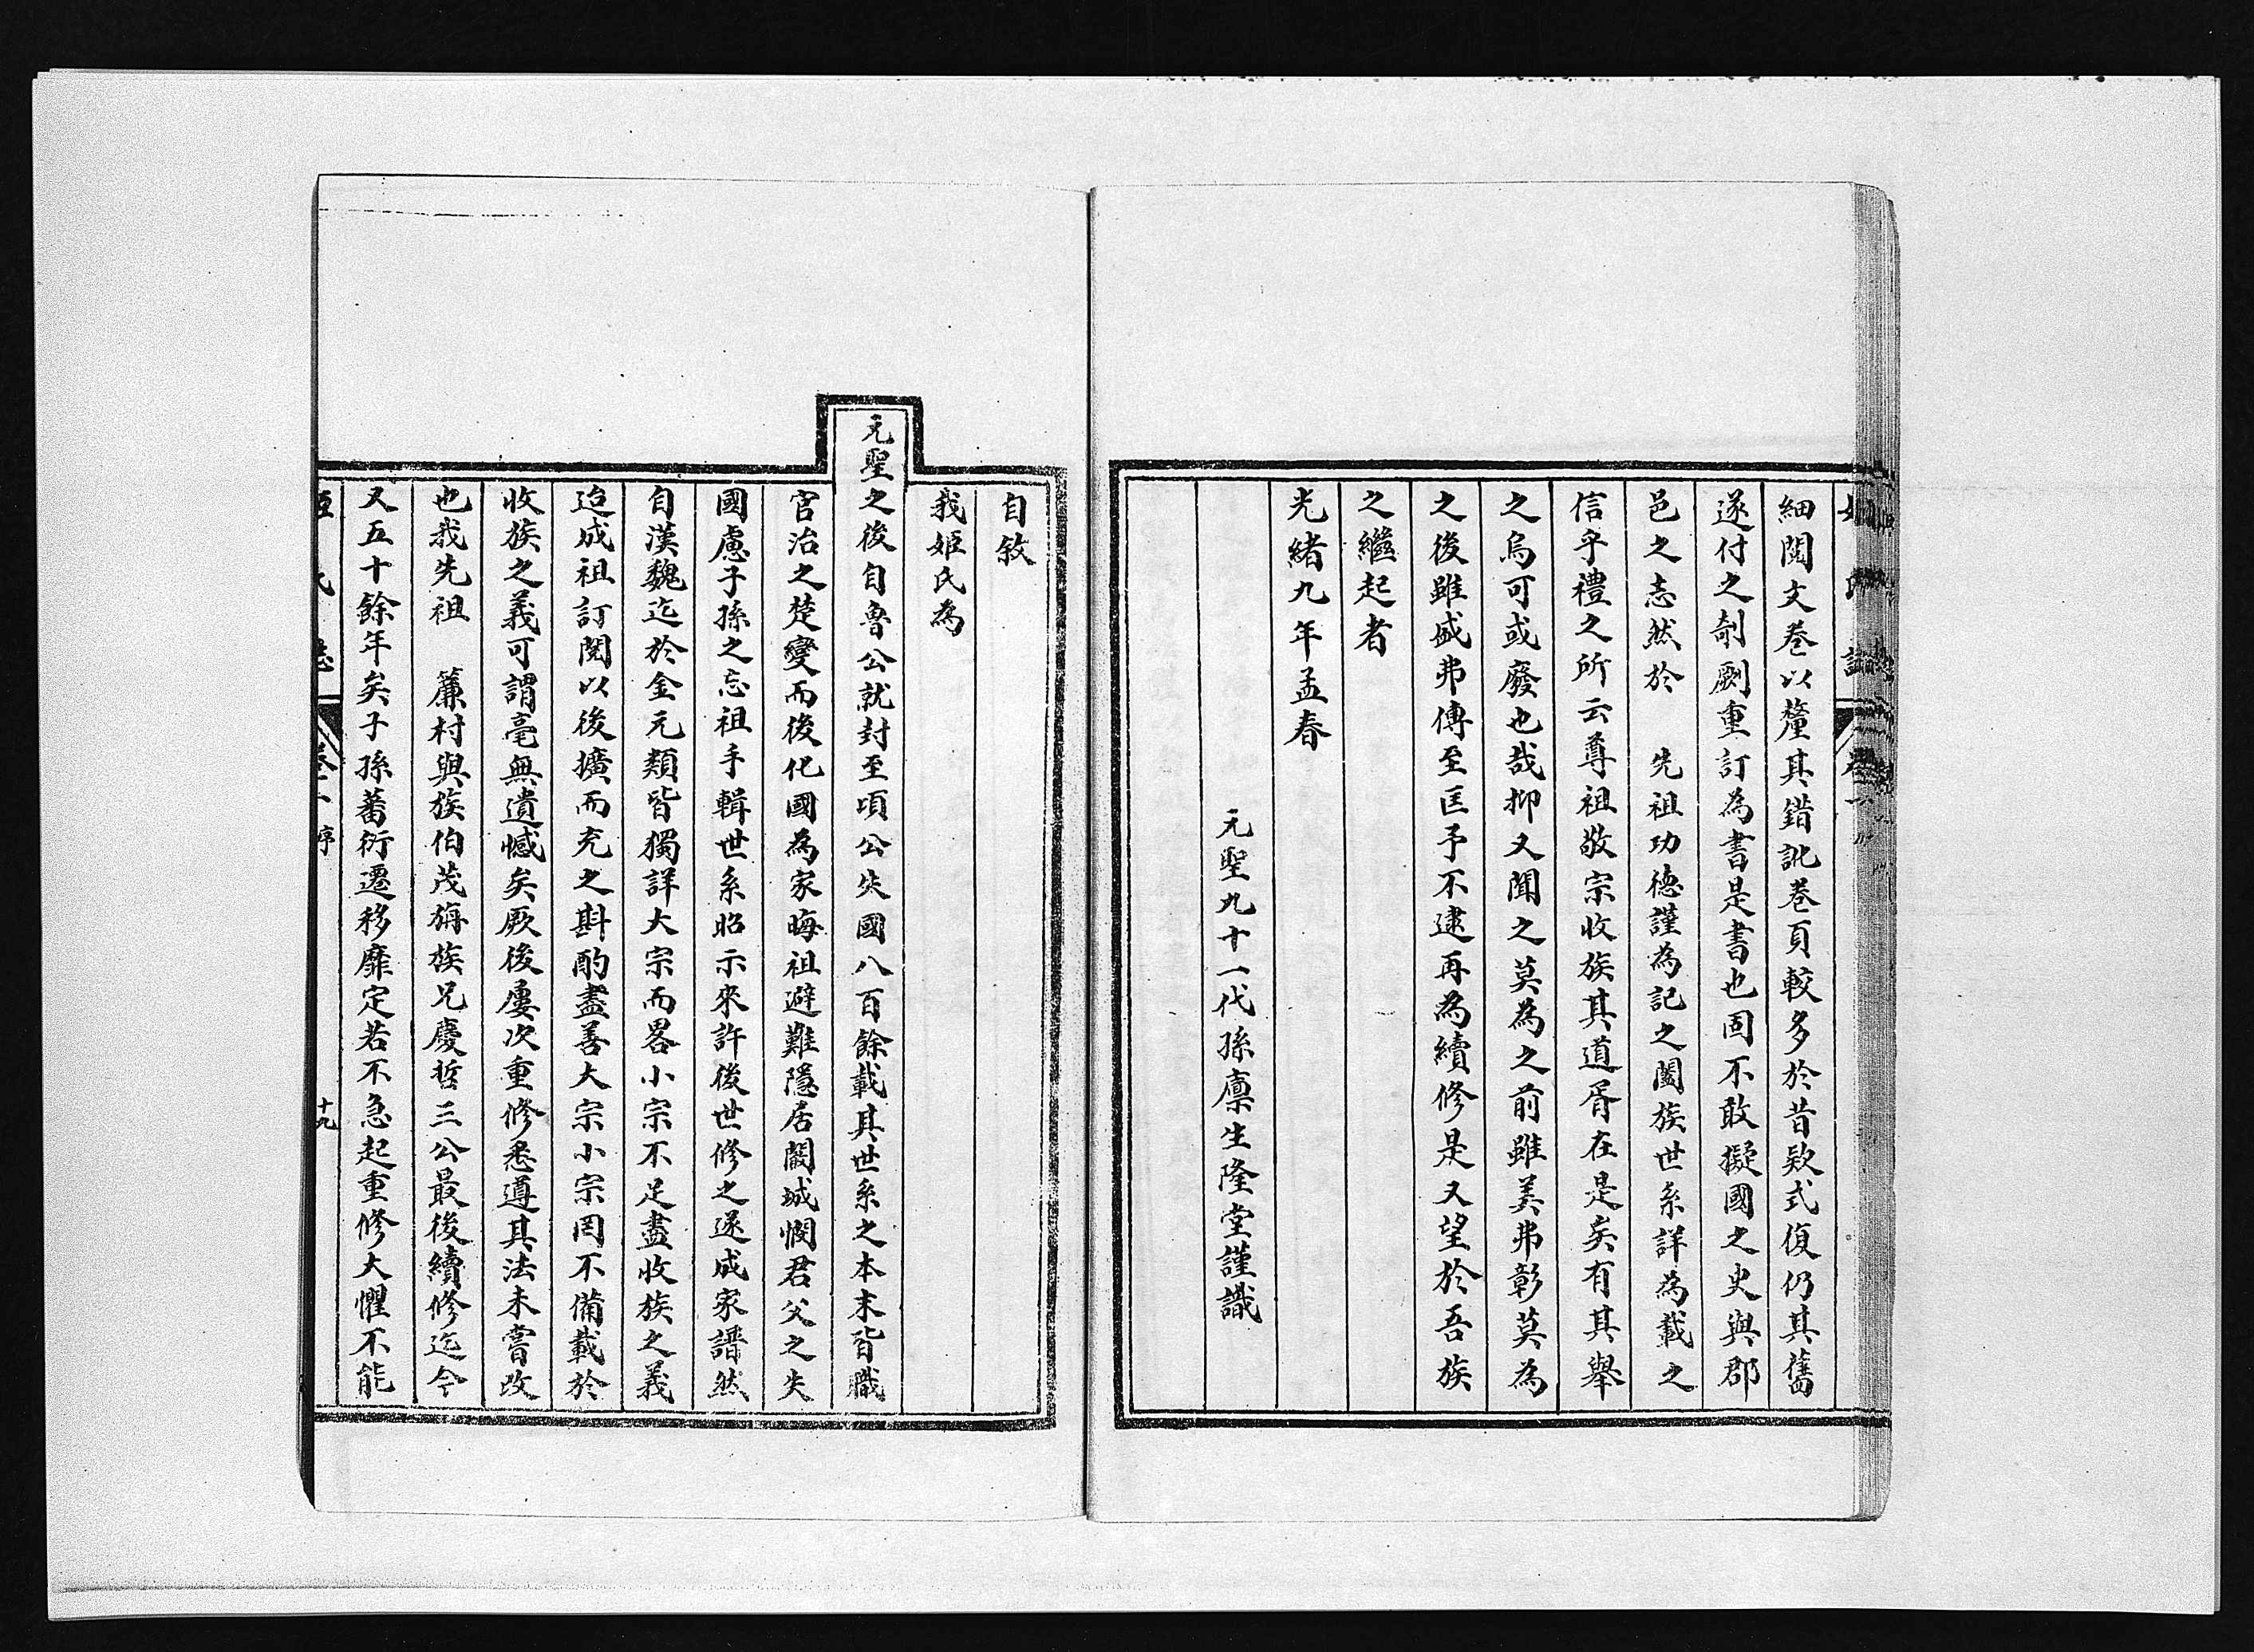 細閱文卷以釐其錯訛卷頁較多於昔欵式復仍其舊
遂付之剞劂重訂為書是書也固不敢擬國之史與郡
邑之志然於　先祖功德謹為記之闔族世系詳為載之
信乎禮之所云尊祖敬宗收族其道胥在是矣有其舉
之烏可或廢也哉抑又聞之莫為之前雖美弗彰莫為
之後雖盛弗傳至匡予不逮再為續修是又望於吾族
之繼起者
光緒九年孟春
元聖九十一代孫廪生隆堂謹識
自敘
我姬氏為
元聖之後自魯公就封至頃公失國八百餘載其世系之本末皆職
官治之楚變而後化國為家晦祖避難隱居闞城憫君父之失
國慮子孫之忘祖手輯世系昭示來許後世修之遂成家譜然
自漢魏迄於金元類皆獨詳大宗而畧小宗不足盡收族之義
迨成祖訂閱以後擴而充之斟酌盡善大宗小宗罔不備載於
收族之義可謂毫無遺憾矣厥後屢次重修悉遵其法未嘗改
也我先祖　簾村與族伯茂旃族兄慶哲三公最後續修迄今
又五十餘年矣子孫蕃衍遷移靡定若不急起重修大懼不能
序
十九